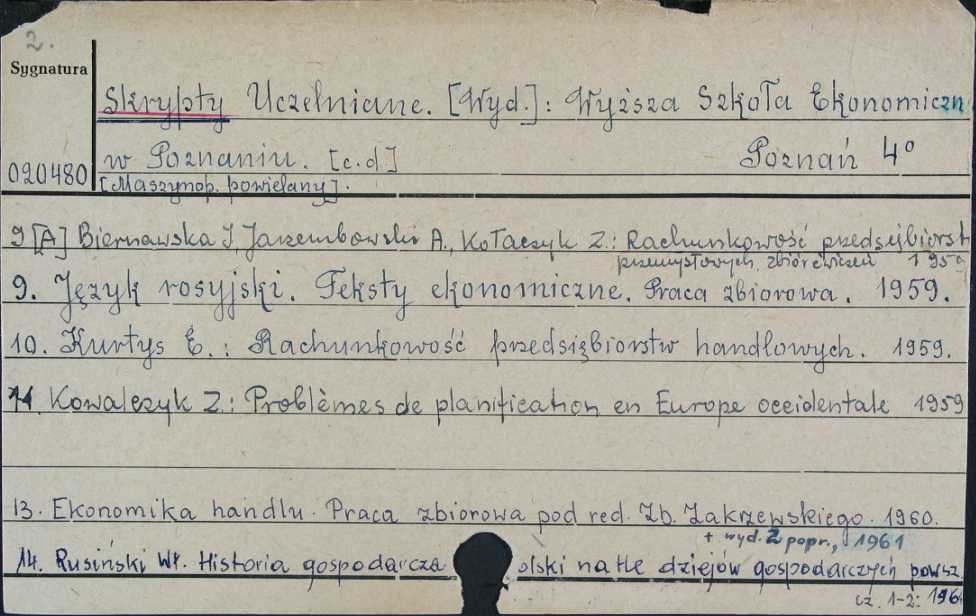 2.
Sygnatura
Skrypty Uczelniane. [Wyd.]: Wyższa Szkoła Ekonomiczn
w Poznaniu. [c.d] Poznań 4°
020480 [Maszynop. powielany].
9[A] Biernawska J, Jarzembowski A., Kołaczyk Z.: Rachunkowość przedsiębiorst
przemysłowych. zbiór ćwiczeń 1959
9. Język rosyjski. Teksty ekonomiczne. Praca zbiorowa. 1959.
10. Kurtys E.: Rachunkowość przedsiębiorstw handlowych. 1959.
11. Kowalczyk Z.: Problèmes de planification en Europe occidentale 1959
13. Ekonomika handlu. Praca zbiorowa pod red. Zb. Zakrzewskiego. 1960.
+ wyd. 2 popr., 1961
14. Rusiński Wł. Historia gospodarcza olski na tle dziejów gospodarczych powsz.
cz. 1-2: 196